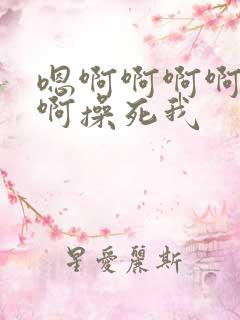 嗯啊啊啊啊
啊操死我
星愛麗斯